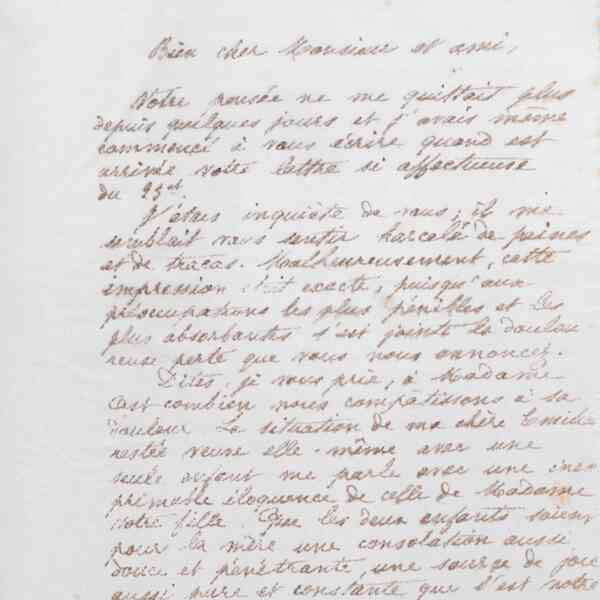 Bien cher Monsieur et ami,
Votre pensée ne me quittait plus
depuis quelques jours et j'avais même
commencé à vous écrire quand est
arrivée votre lettre si affectueuse
du 25 ct.
J'étais inquiète de vous ; il me
semblait vous sentir harcelé de peines
et de tracas. Malheureusement, cette
impression était exacte, puisqu'aux
préoccupations les plus pénibles et les
plus absorbantes s'est jointe la doulou
reuse perte que vous nous annoncez.
Dites, je vous prie, à Madame
combien nous compatissons à sa
douleur. La situation de ma chère Emilie
restée veuve elle-même avec une
seule enfant me parle avec une inex
primable éloquence de celle de Madame
votre fille. Que les deux enfants soient
pour la mère une consolation aussi
douce et pénétrante, une source de joie
aussi pure et constante que l'est notre